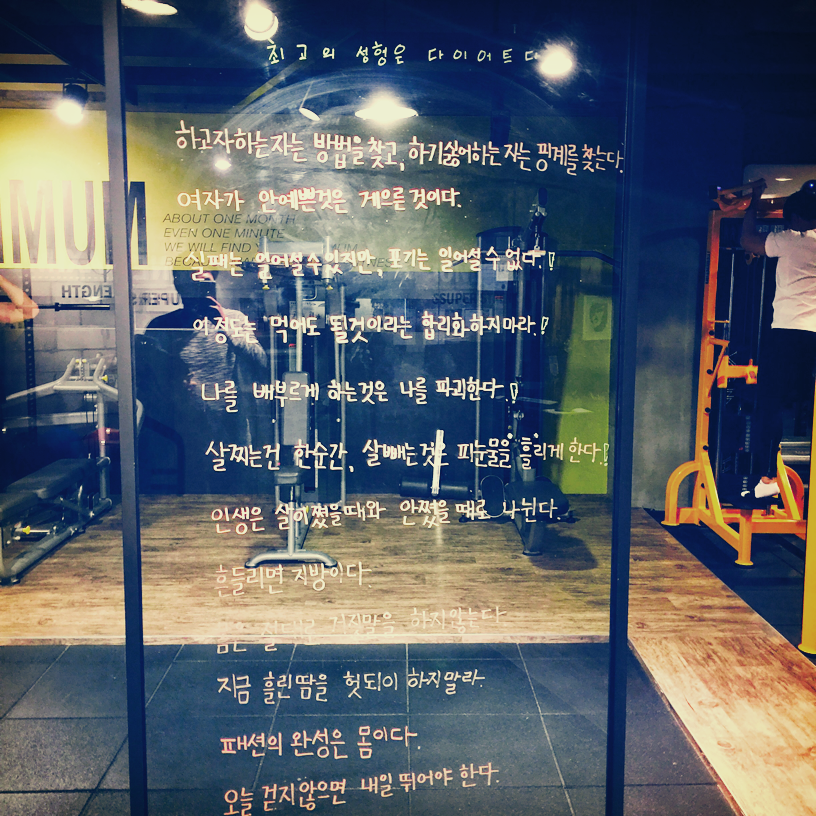 최고의 성형은 다이어트다
하고자하는자는 방법을찾고, 하기싫어하는자는 핑계를찾는다.
여자가 안예쁜것은 게으른것이다.
MUM
ABOUT ONE MONTH
EVEN ONE MINUTE
WE WILL FIND
일어설수 있지만, 포기는 일어설수 없다.!
SUPER
이정도는 먹어도 될것이라는 합리화하지마라.!
나를 배부르게 하는것은 나를 파괴한다.!
살찌는건 한순간, 살빼는것은 피눈물을 흘리게한다.!
인생은 살이쪘을때와 안쪘을때로 나뉜다.
흔들리면 지방이다.
몸은 절대로 거짓말을 하지않는다.
지금 흘린땀을 헛되이 하지말라.
패션의 완성은 몸이다.
오늘 걷지않으면 내일 뛰어야 한다.